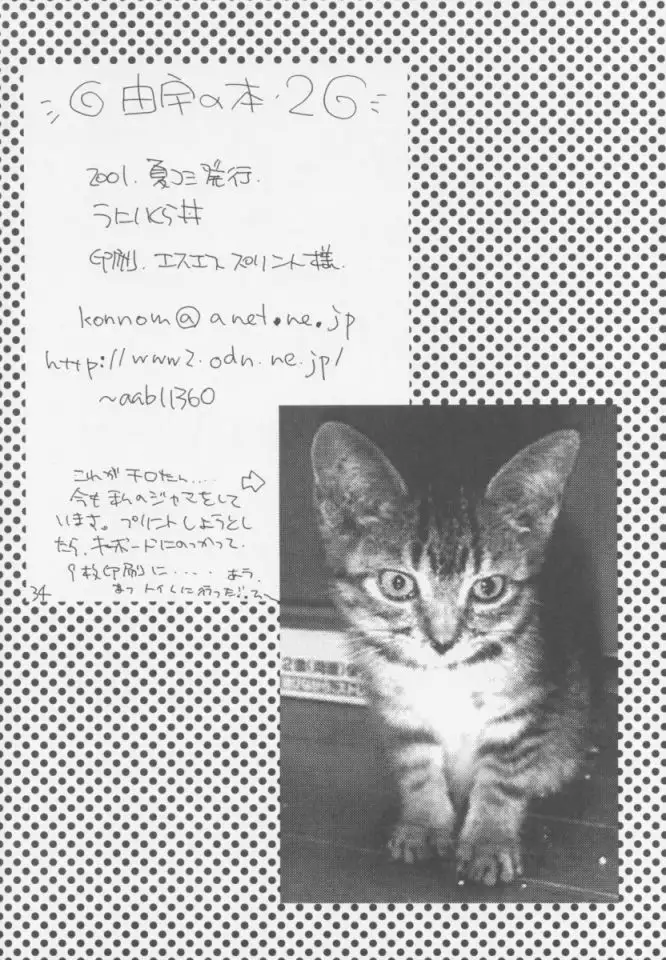 由宇の本・2
2001. 夏コミ発行.
うにいくら丼
印刷. エスエスプリント様.
konnom@anet.ne.jp
http://www2.odn.ne.jp/
~aab11360
これがチロたん....
今も まんのジャマをして
います。プリントしようとし
たら、キーボードにのっかって.
9枚印刷に・・・・ おう.
あっ トイレに行った
34